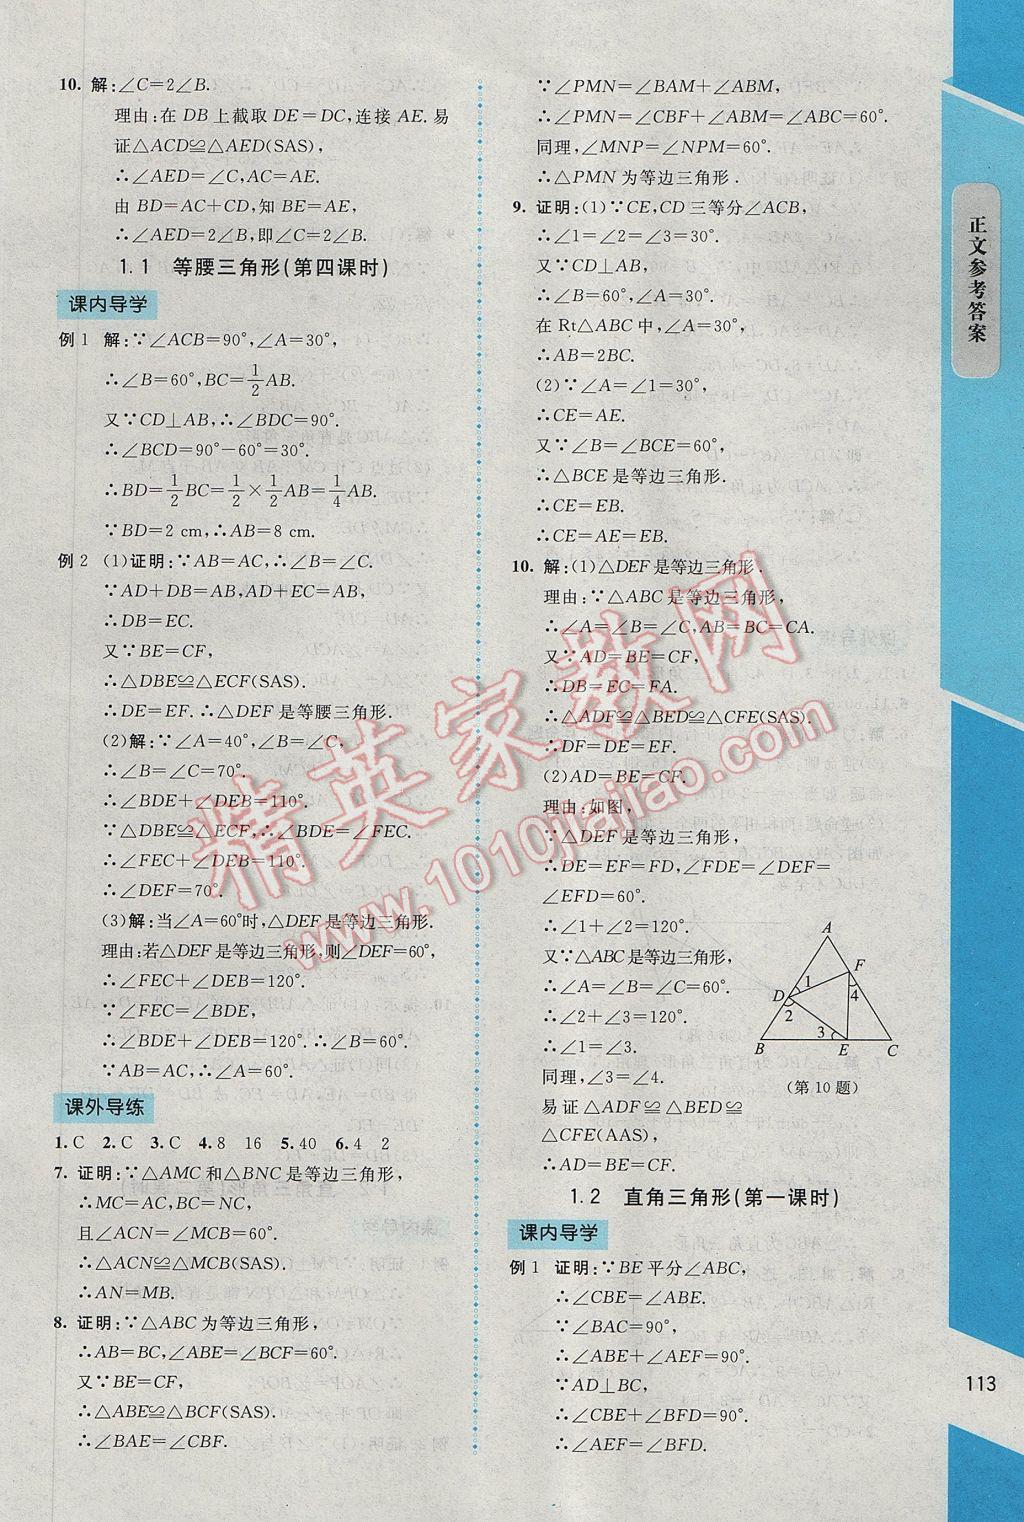 10. 解:∠C=2∠B.
理由:在 DB 上截取 DE=DC,连接 AE. 易
证△ACD≌△AED(SAS),
∴∠AED=∠C,AC=AE.
由 BD=AC+CD,知 BE=AE,
∴∠AED=2∠B,即∠C=2∠B.
1.1 等腰三角形(第四课时)
课内导学
例 1 解:∵∠ACB=90°,∠A=30°,
∴∠B=60°,BC=1/2AB.
又∵CD⊥AB,∴∠BDC=90°.
∴∠BCD=90°-60°=30°.
∴BD=1/2BC=1/2×1/2AB=1/4AB.
∵BD=2 cm,∴AB=8 cm.
例 2 (1)证明:∵AB=AC,∴∠B=∠C.
∵AD+DB=AB,AD+EC=AB,
∴DB=EC.
又∵BE=CF,
∴△DBE≌△ECF(SAS).
∴DE=EF. ∴△DEF是等腰三角形.
(2)解:∵∠A=40°,∠B=∠C,
∴∠B=∠C=70°.
∴∠BDE+∠DEB=110°.
∵△DBE≌△ECF,∴∠BDE=∠FEC.
∴∠FEC+∠DEB=110°.
∴∠DEF=70°.
(3)解:当∠A=60°时,△DEF是等边三角形.
理由:若△DEF是等边三角形,则∠DEF=60°,
∴∠FEC+∠DEB=120°.
∵∠FEC=∠BDE,
∴∠BDE+∠DEB=120°. ∴∠B=60°.
∵AB=AC,∴∠A=60°.
课外导练
1. C 2. C 3. C 4. 8 16 5. 40 6. 4 2
7. 证明:∵△AMC 和△BNC 是等边三角形,
∴MC=AC,BC=NC,
且∠ACN=∠MCB=60°.
∴△ACN≌△MCB(SAS).
∴AN=MB.
8. 证明:∵△ABC 为等边三角形,
∴AB=BC,∠ABE=∠BCF=60°.
又∵BE=CF,
∴△ABE≌△BCF(SAS).
∴∠BAE=∠CBF.
∵∠PMN=∠BAM+∠ABM,
∴∠PMN=∠CBF+∠ABM=∠ABC=60°.
同理,∠MNP=∠NPM=60°.
∴△PMN 为等边三角形.
9. 证明:(1)∵CE,CD 三等分∠ACB,
∴∠1=∠2=∠3=30°.
又∵CD⊥AB,
∴∠B=60°,∠A=30°.
在 Rt△ABC 中,∠A=30°,
∴AB=2BC.
(2)∵∠A=∠1=30°,
∴CE=AE.
又∵∠B=∠BCE=60°,
∴△BCE 是等边三角形.
∴CE=EB.
∴CE=AE=EB.
10. 解:(1)△DEF 是等边三角形.
理由:∵△ABC 是等边三角形,
∴∠A=∠B=∠C,AB=BC=CA.
又∵AD=BE=CF,
∴DB=EC=FA.
∴△ADF≌△BED≌△CFE(SAS).
∴DF=DE=EF.
(2)AD=BE=CF.
理由:如图,
∵△DEF 是等边三角形,
∴DE=EF=FD,∠FDE=∠DEF=
∠EFD=60°.
∴∠1+∠2=120°.
又∵△ABC 是等边三角形,
∴∠A=∠B=∠C=60°.
∴∠2+∠3=120°.
∴∠1=∠3.
同理,∠3=∠4.
易证△ADF≌△BED≌
△CFE(AAS),
∴AD=BE=CF.
A
F
1
D
4
2
3
B E C
(第 10 题)
1.2 直角三角形(第一课时)
课内导学
例 1 证明:∵BE 平分∠ABC,
∴∠CBE=∠ABE.
∵∠BAC=90°,
∴∠ABE+∠AEF=90°.
∵AD⊥BC,
∴∠CBE+∠BFD=90°.
∴∠AEF=∠BFD.
正文参考答案
113
精英家教网
www.1010jiajiao.com